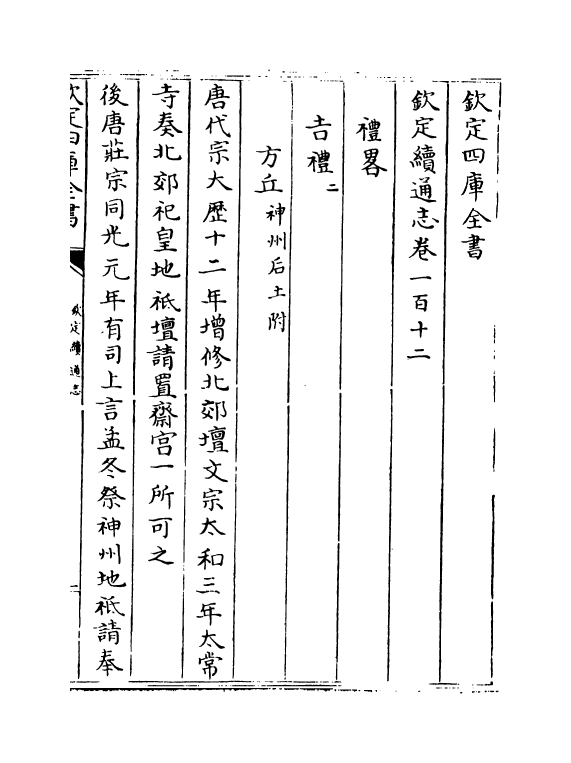 欽定四庫全書
欽定續通志卷一百十二
禮畧
吉禮二
方丘神州后土附
唐代宗大歴十二年增修北郊壇文宗太和三年太常
寺奏北郊祀皇地祇壇請置齋宫一所可之
後唐莊宗同光元年有司上言孟冬祭神州地祇請奉
欽定四庫全書
欽定續通志